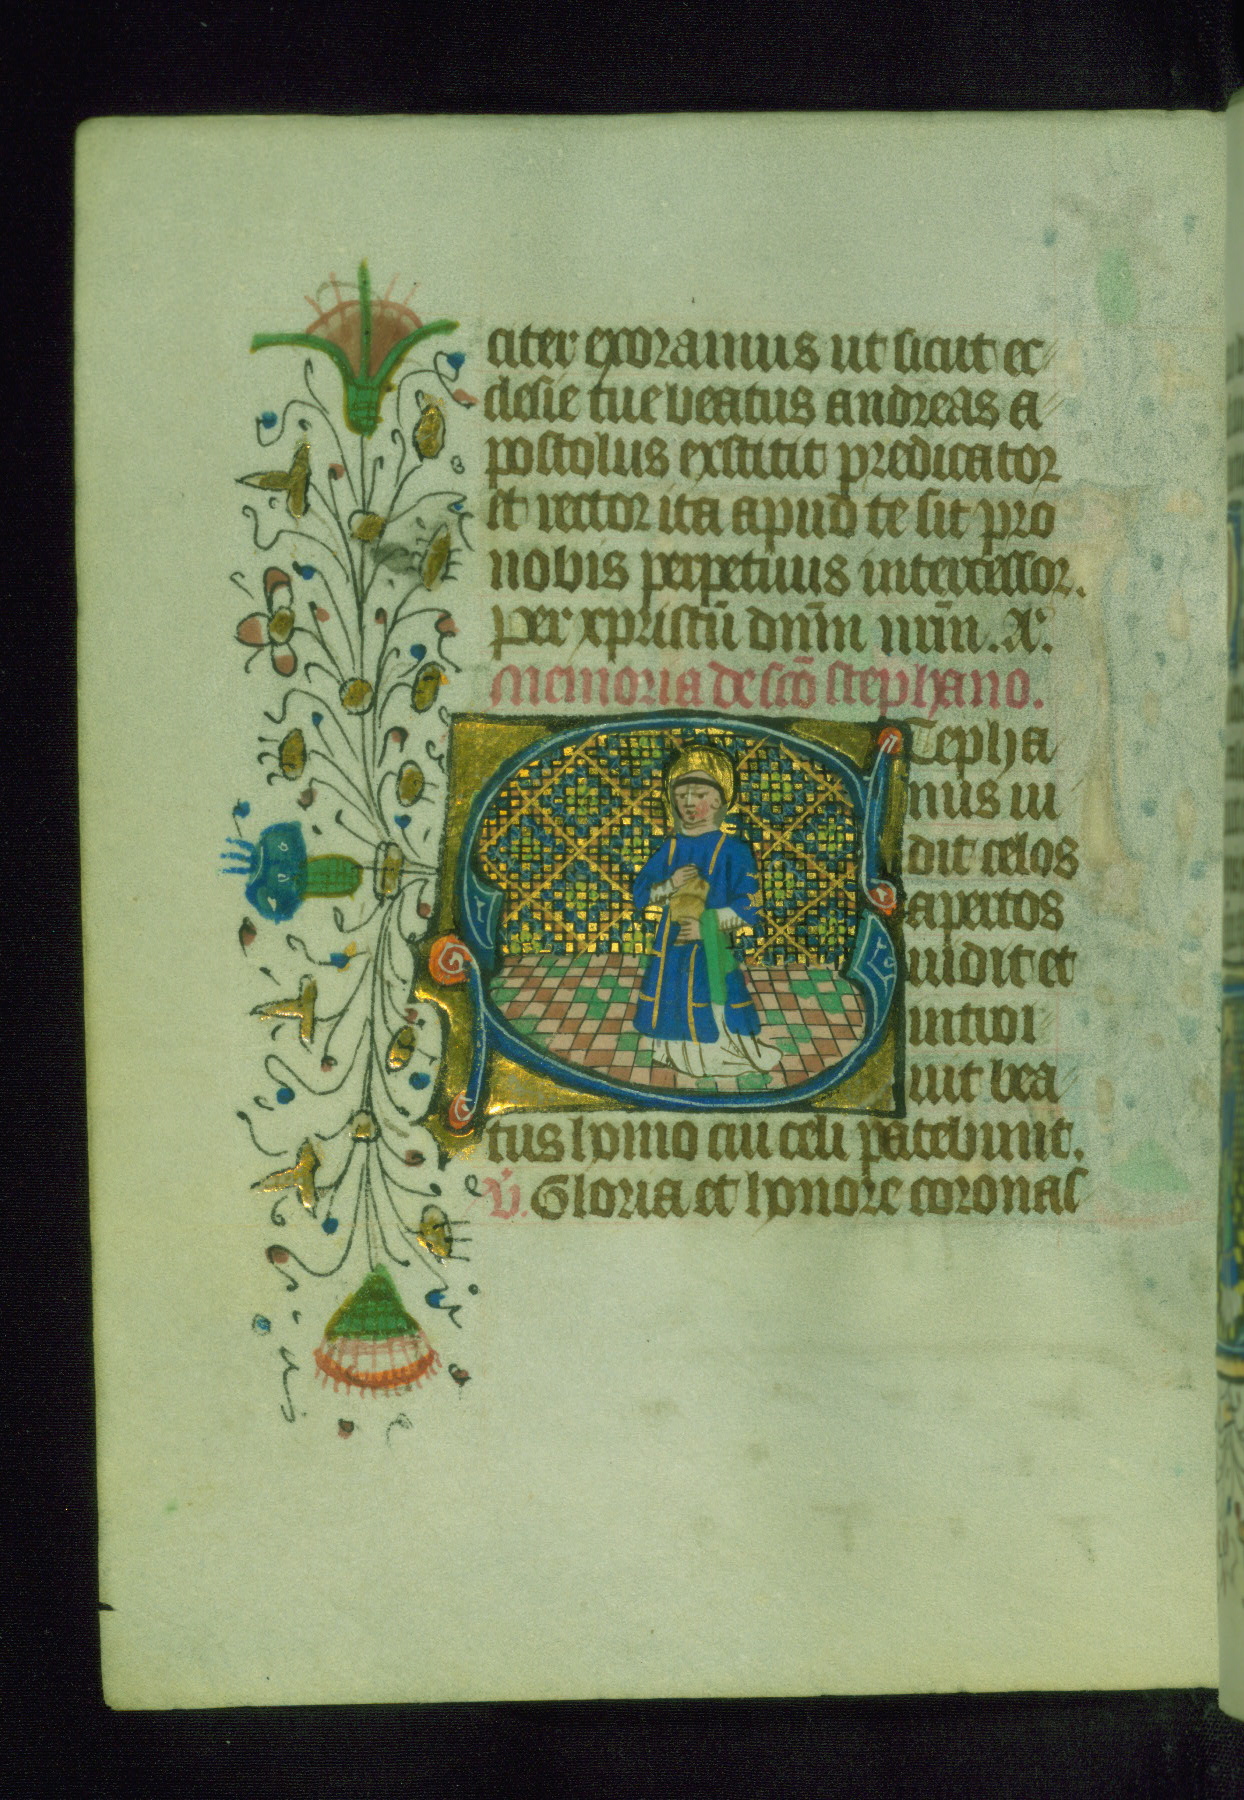 citer exoramus ut sicut ec
clesie tue beatus andreas a
postolus exstitit predicator
et rector ita apud te sit pro
nobis perpetuus intercessor.
Per xpristū dn̄m nr̄m. A.
Memoria de sc̄o stephano.
Tepha
nus ui
dit celos
apertos
uidit et
introi
uit bea
tus homo cui celi patebunt.
V̄. Gloria et honore coronas